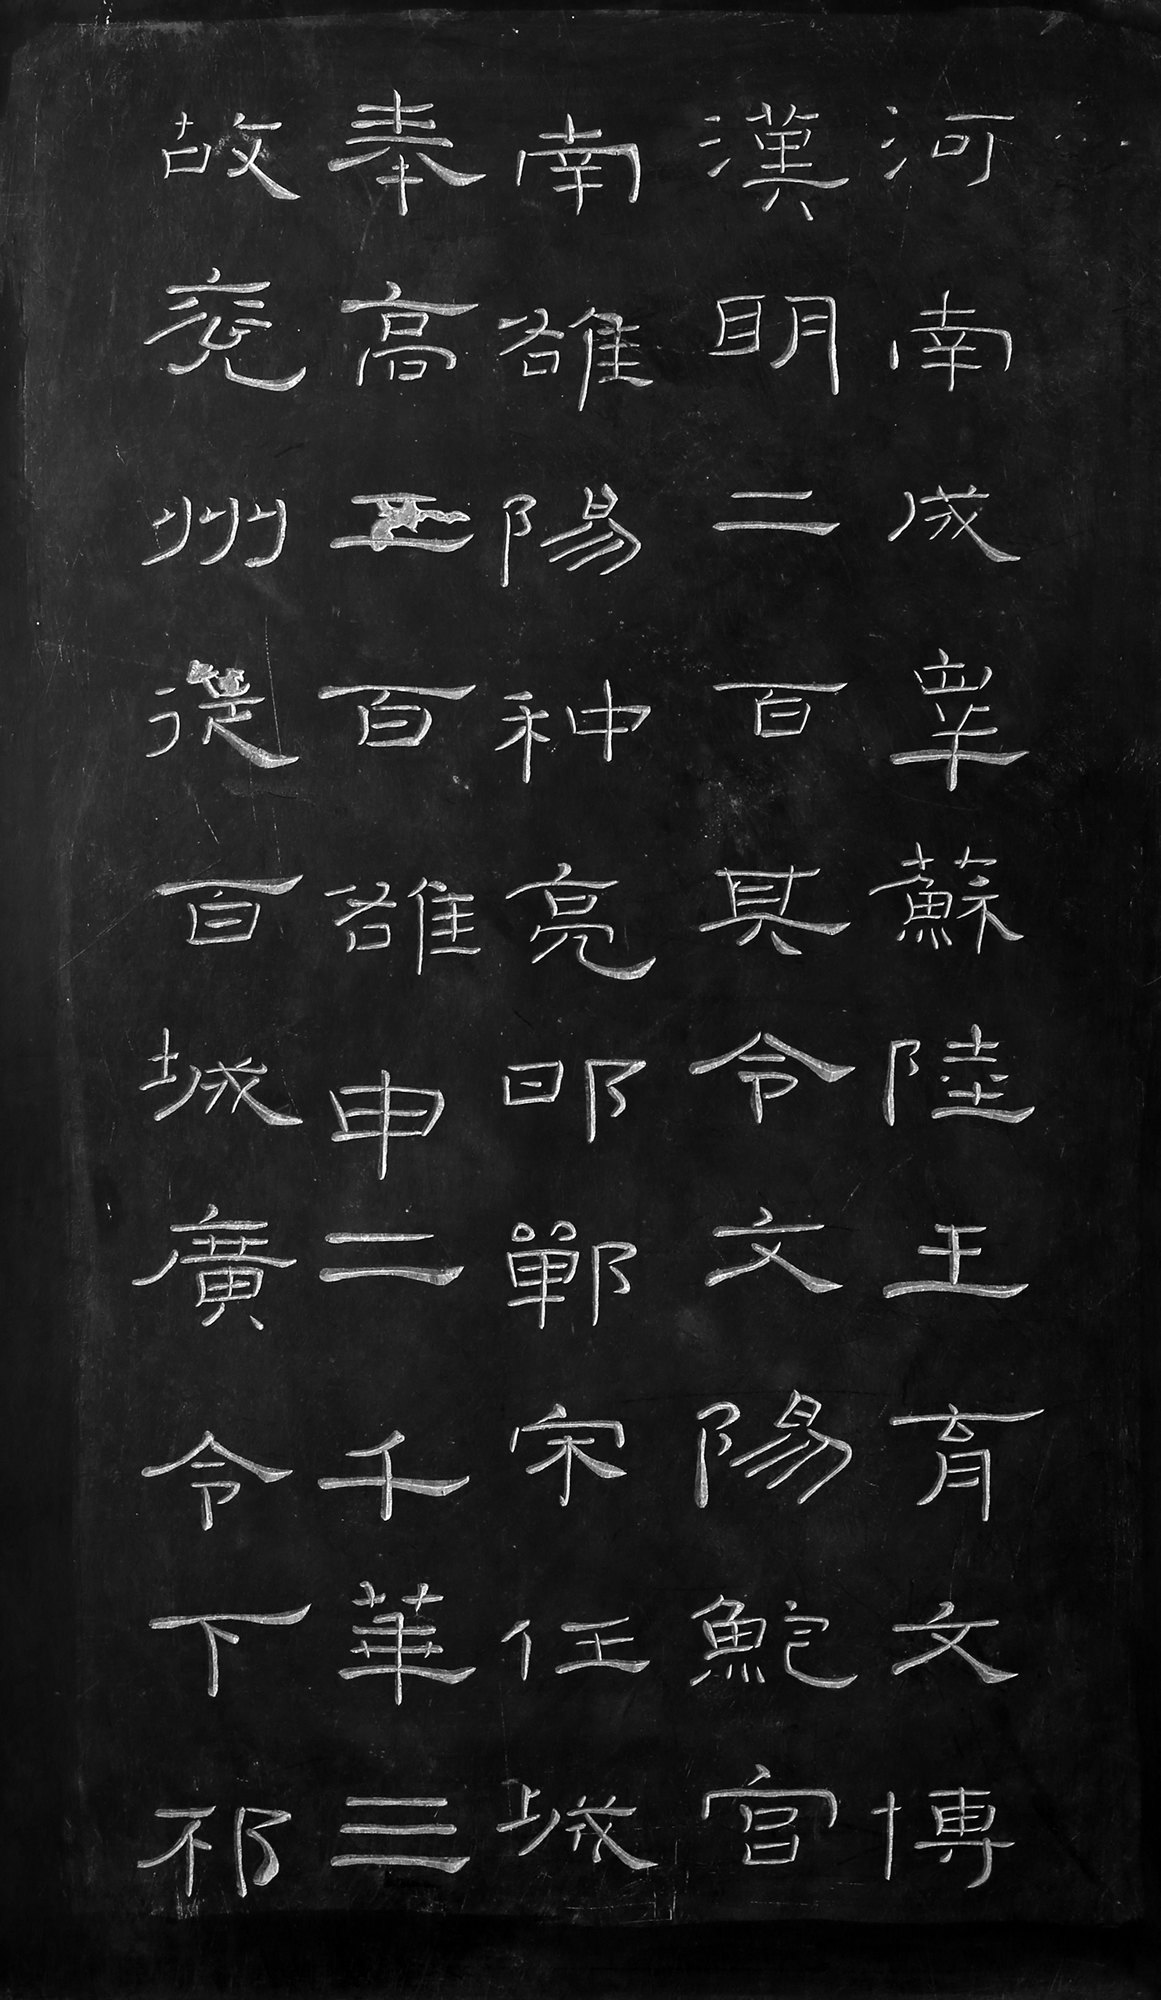 河南成睪蘇陸王育文博
漢明二百其令文陽鮑宮
南雒陽种亮邯鄲宋任城
奉高五百雒申二千華三
故兗州從百城廣令下邳